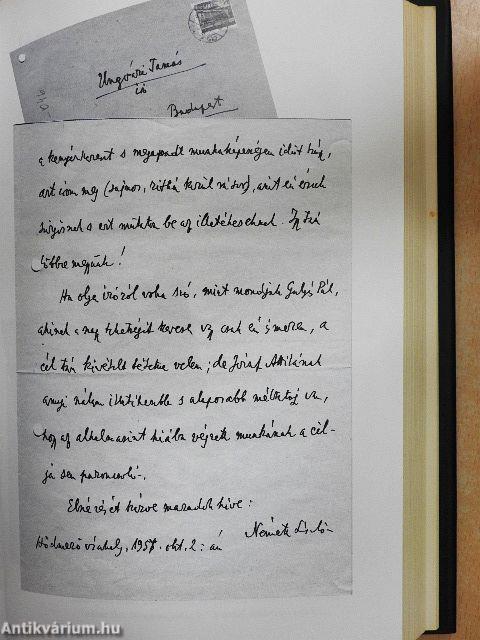 Ungvári Tamás
író
Budapest
a kenyérkereset s megapadt munkaképességem időt hágy,
azt írom meg (sajnos, ritkán kerül rá sor), amit én érzek
sürgősnek s ezt mutatom be az illetékeseknek. Így tán
többre megyünk!
Ha olyan íróról volna szó, mint mondjuk Gulyás Pál,
akinek a nagy tehetségét kevesen vagy csak én ismerem, a
cél tán kivételt tétetne velem; de József Attilának
annyi nálam illetékesebb s alaposabb méltatója van,
hogy az alkalmasint hiába végzett munkának a cél-
ja sem parancsoló.
Elnézését kérve maradok híve:
Németh László
Hódmezővásárhely, 1957. okt. 2.-án
Antikvárium.hu